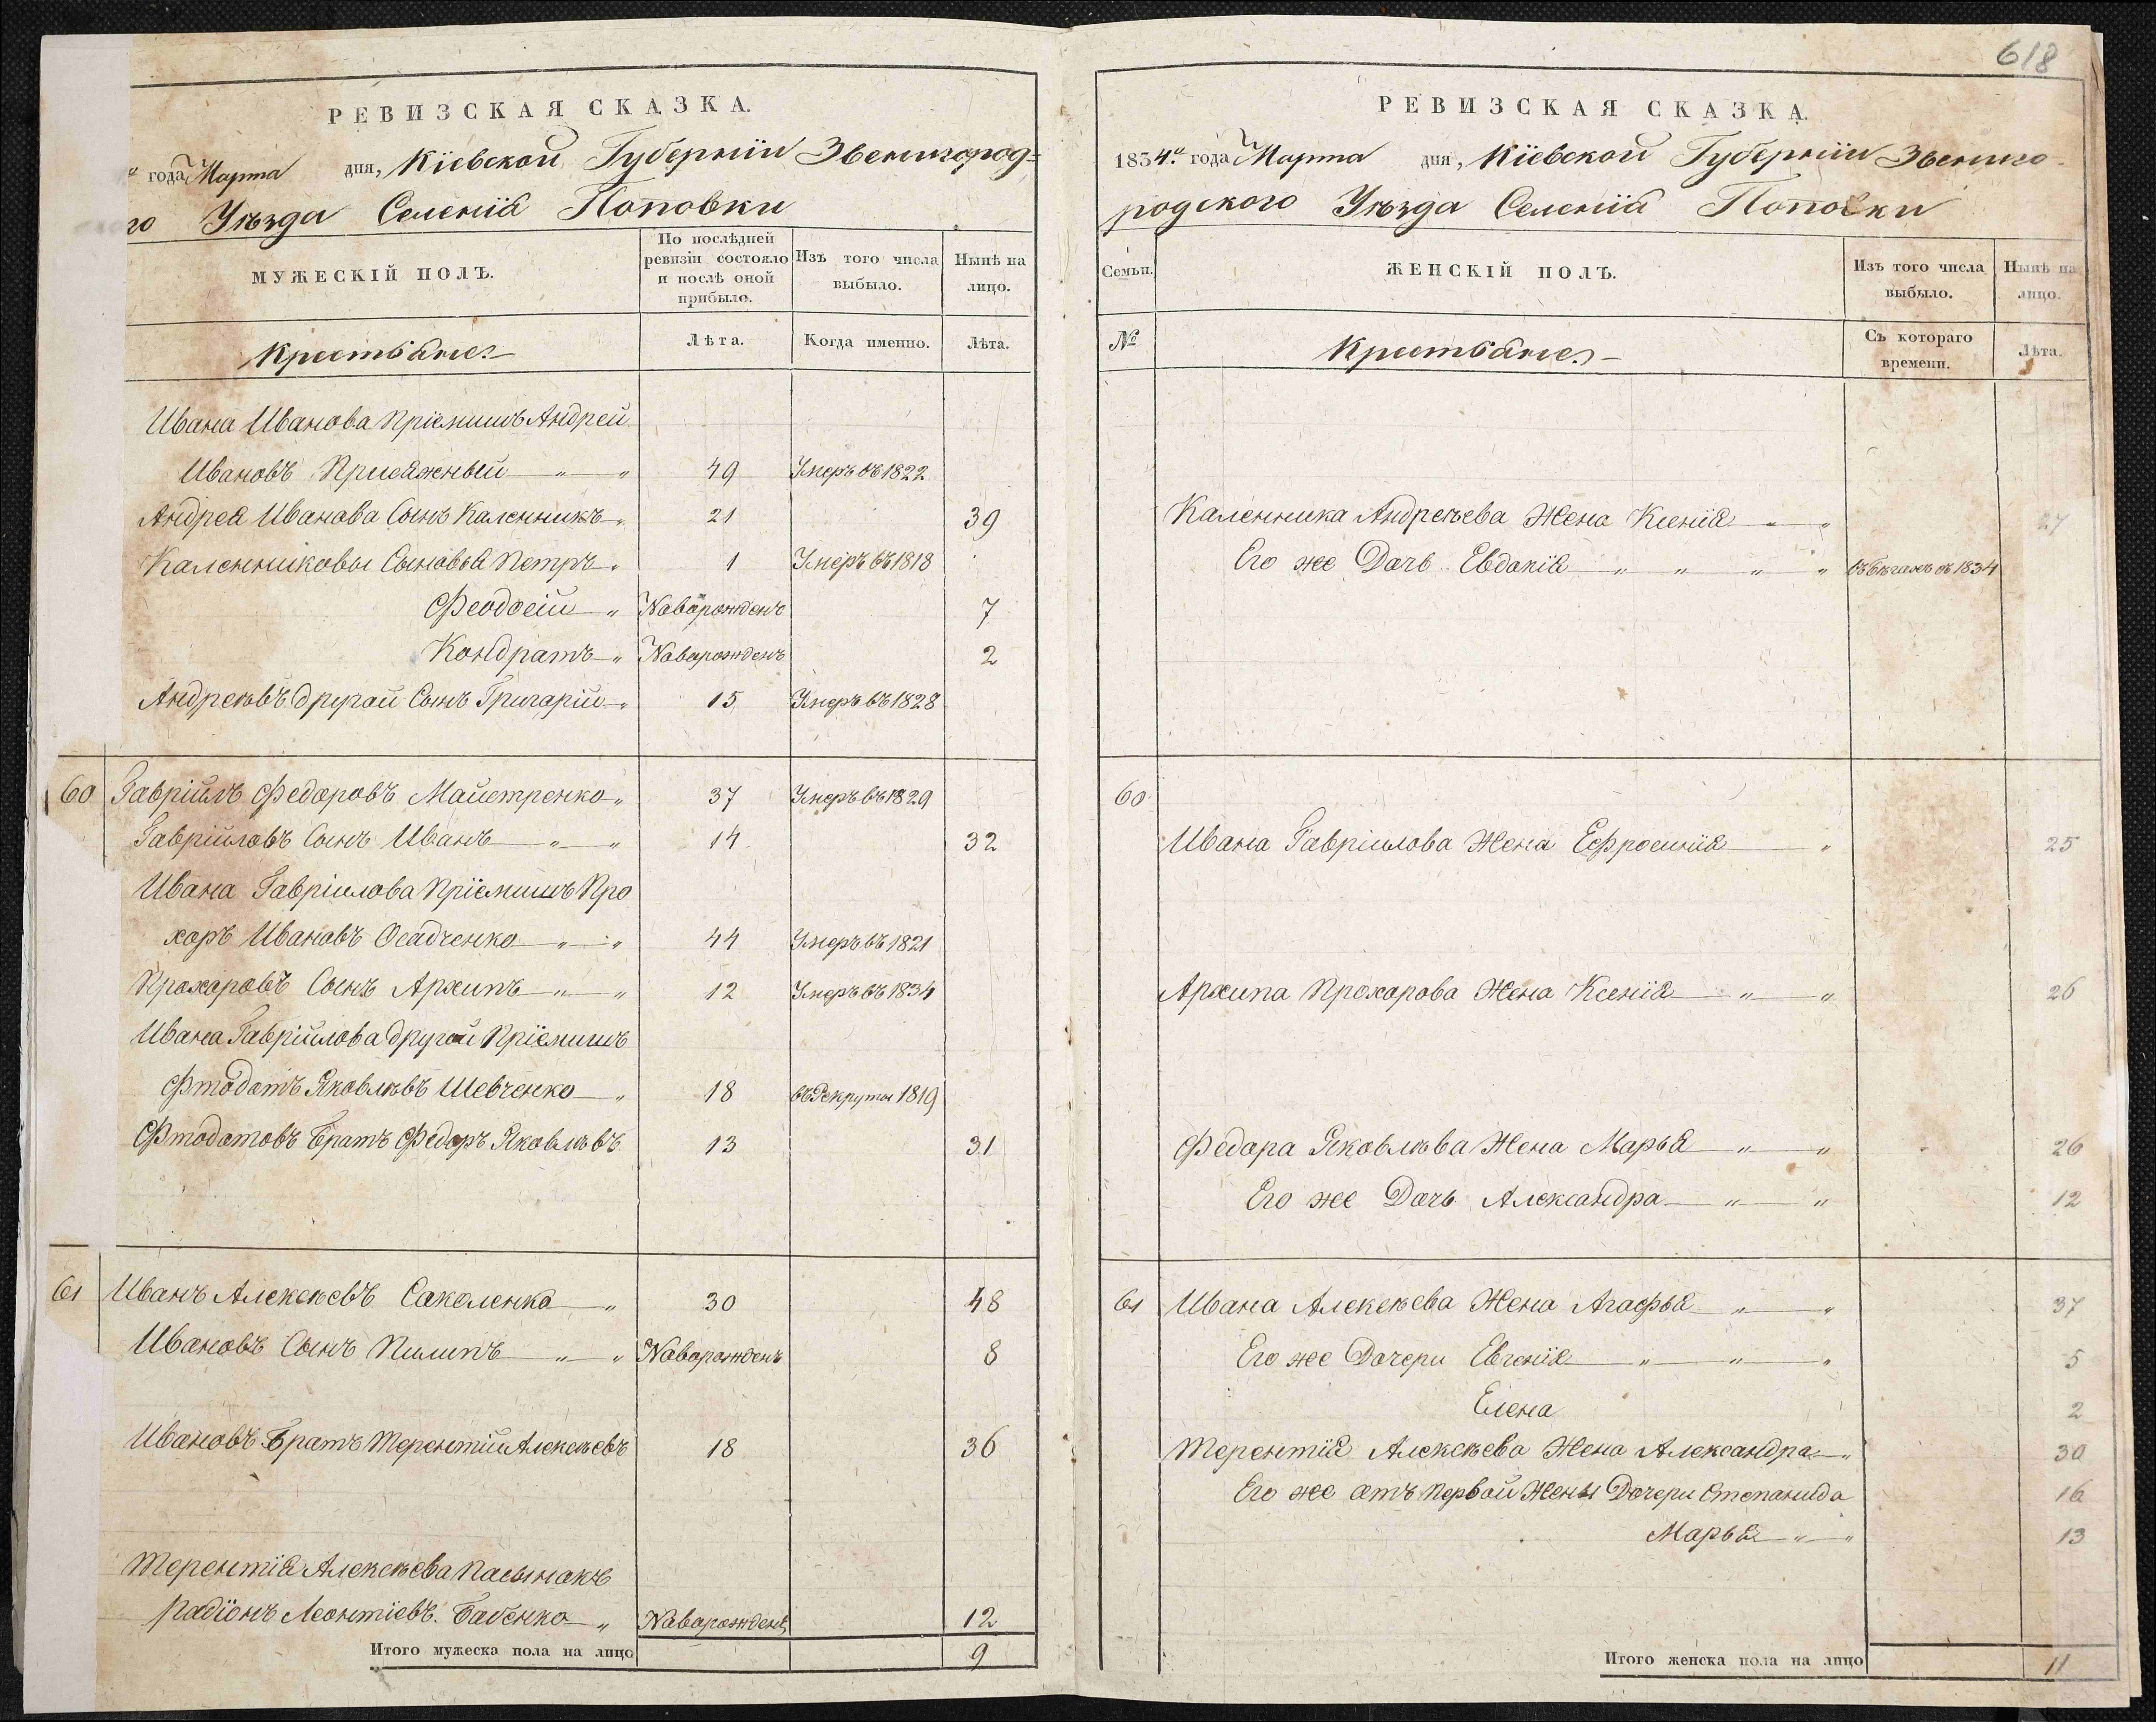 РЕВИЗСКАЯ СКАЗКА.
года Марта дня, Кіевской Губерніи Звенигород=
го Уѣзда Селенія Поповки
МУЖЕСКІЙ ПОЛЪ.
По послѣдней ревизіи состояло и послѣ оной прибыло.
Изъ того числа выбыло.
Нынѣ на лицо.
Крестьяне
Лѣта.
Когда именно.
Лѣта.
Ивана Иванова Пріемишъ Андрей
Ивановъ Присяжный 49 Умеръ въ 1822
Андрея Иванова Сынъ Каленникъ 21 39
Каленниковы Сыновья Петръ 1 Умеръ въ 1818
Феодосій Наварожденъ 7
Кондратъ Наварожденъ 2
Андреевъ другой Сынъ Григарій 15 Умеръ въ 1828
60 Гавріилъ Федоровъ Майстренко 37 Умеръ въ 1829
Гавріиловъ Сынъ Иванъ 14 32
Ивана Гавріилова Пріемишъ Про
хоръ Ивановъ Осадченко 44 Умеръ въ 1821
Прохоровъ Сынъ Архипъ 12 Умеръ въ 1834
Ивана Гавріилова другой Пріемишъ
Фтодотъ Яковлѣвъ Шевченко 18 въ Рекруты 1819
Фтодотовъ Братъ Федоръ Яковлѣвъ 13 31
61 Иванъ Алексѣевъ Саколенко 30 48
Ивановъ Сынъ Пилипъ Наварожденъ 8
Ивановъ Братъ Терентій Алексѣевъ 18 36
Терентія Алексѣева Пасынакъ
Радіонъ Леонтіевъ Бабенко Наварожденъ 12
Итого мужеска пола на лицо 9
618
РЕВИЗСКАЯ СКАЗКА.
1834го года Марта дня, Кіевской Губерніи Звениго-
родского Уѣзда Селенія Поповки
Семьи.
ЖЕНСКІЙ ПОЛЪ.
Изъ того числа выбыло.
Нынѣ на лицо.
№
Крестьяне
Съ котораго времени.
Лѣта.
Каленника Андреева Жена Ксенія 27
Его же Дочь Евдокія въ бѣгахъ въ 1834
60
Ивана Гавріилова Жена Ефросинія 25
Архипа Прохорова Жена Ксенія 26
Федора Яковлѣва Жена Марья 26
Его же Дочь Александра 12
61 Ивана Алексѣева Жена Агафья 37
Его же Дочери Евгенія 5
Елена 2
Терентія Алексѣева Жена Александра 30
Его же отъ первой Жены Дочери Степанида 16
Марья 13
Итого женска пола на лицо 11